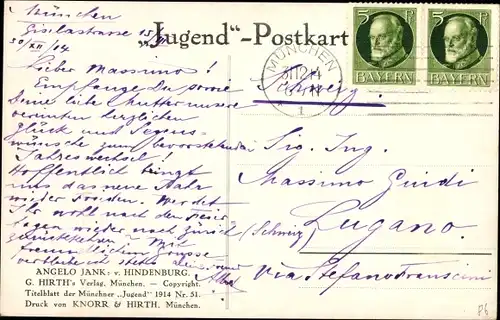 München
Giselastrasse 15/III
30/XII 14
„Jugend"-Postkart
Lieber Massimo!
Empfange Du sowie
Deine liebe Mutter unsere
vereinten herzlichen
Glück und Segens-
wünsche zum bevorstehenden
Jahreswechsel!
Hoffentlich bringt
uns das neue Jahr
wieder Frieden. Werdet
Ihr wohl nach den
wieder nach Zürich
zurückkehren? Mit
verbleibe ich stets Dein
5 P
BAYERN
5 P
BAYERN
MÜNCHEN
31.12.14
1
Schweiz
Sig. Ing.
Massimo Guidi
Lugano.
(Schweiz)
Via Stefano Franscini
ANGELO JANK: v. HINDENBURG.
G. HIRTH's Verlag, München. — Copyright.
Titelblatt der Münchner „Jugend" 1914 Nr. 51.
Druck von KNORR & HIRTH, München.